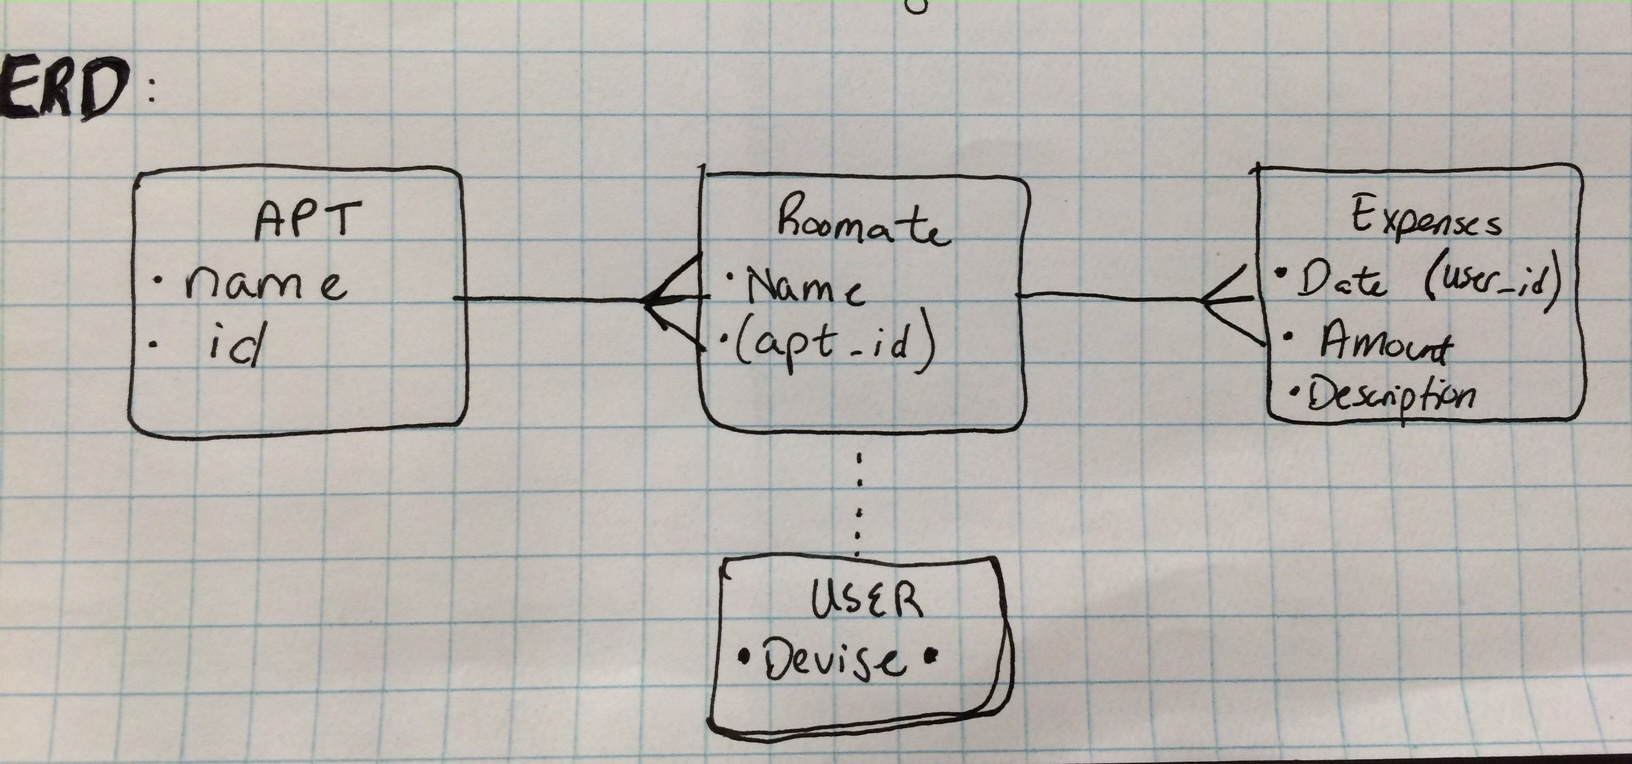 ERD:
APT
• name
• id
Roomate
• Name
• (apt_id)
Expenses
• Date (user_id)
• Amount
• Description
USER
• Devise •